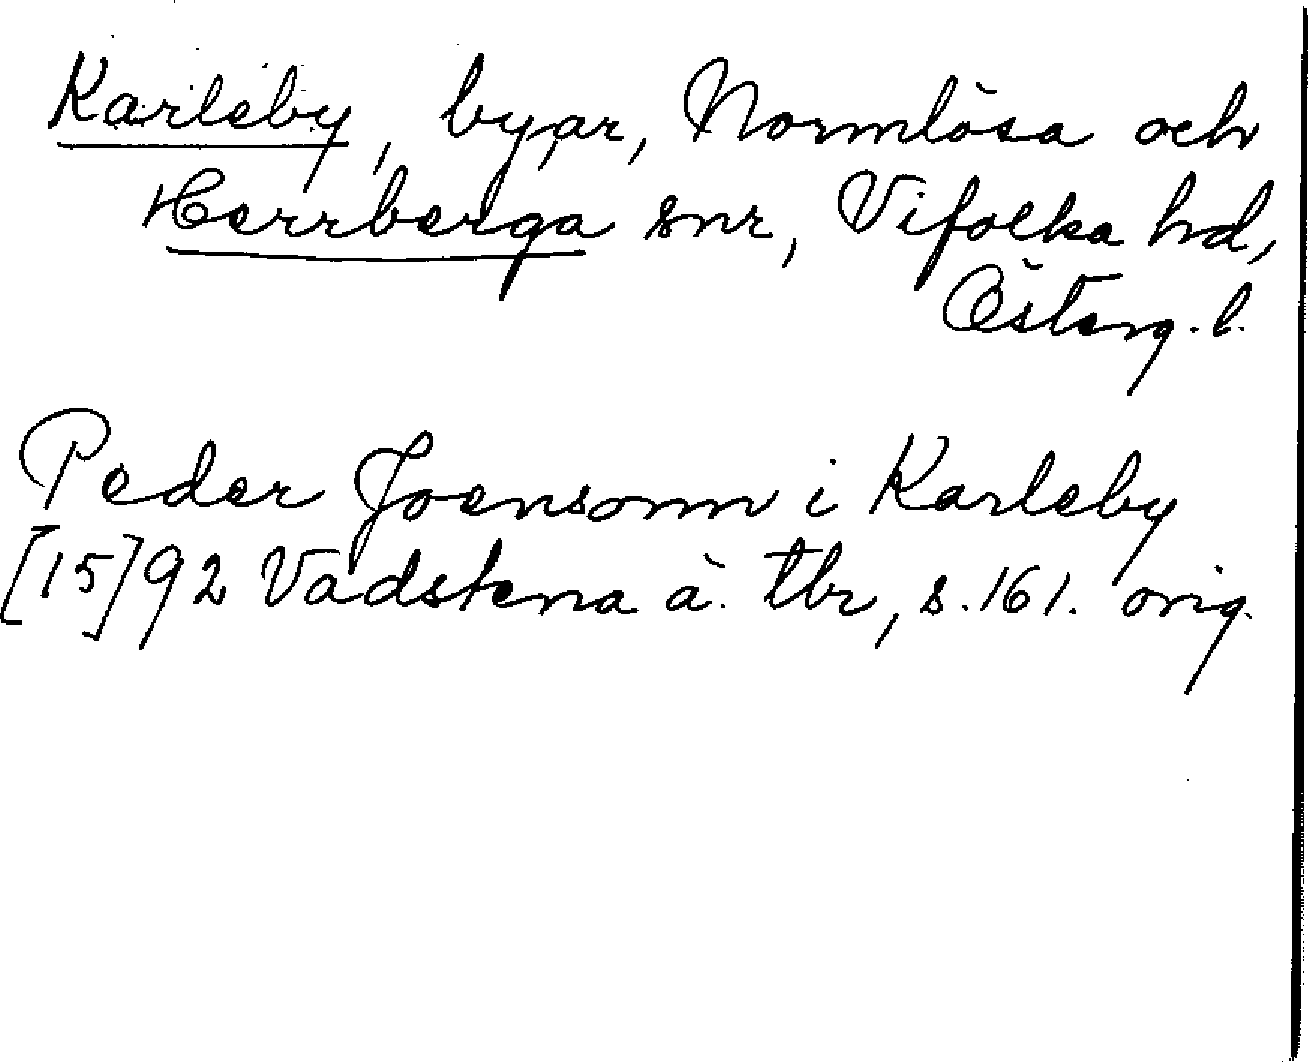 Karleby, byar, Normlösa och
Herrberga snr, Vifolka hd,
Österg. l.
Peder Joensonn i Karleby
[15]92 Vadstena ä. tbr, s. 161. orig.